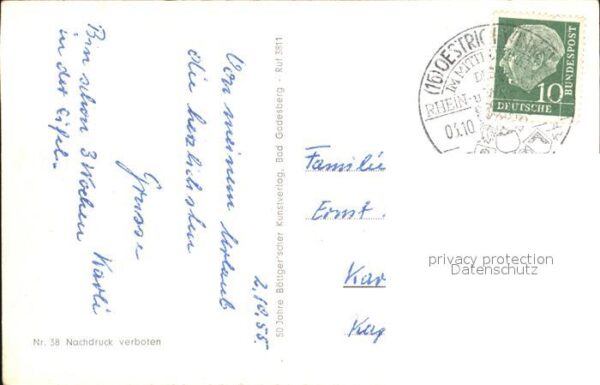 2.10.55.
Von meinem Urlaub
die herzlichsten
Grüsse
Bin schon 3 Wochen Karli
in der Eifel.
Nr. 38 Nachdruck verboten
50 Jahre Böttger'scher Kunstverlag, Bad Godesberg - Ruf 3811
Familie
Ernst.
Kar
Kap
(16) OESTRICH
IM MITT
RHEIN- u
03.10
10
DEUTSCHE
BUNDESPOST
privacy protection
Datenschutz